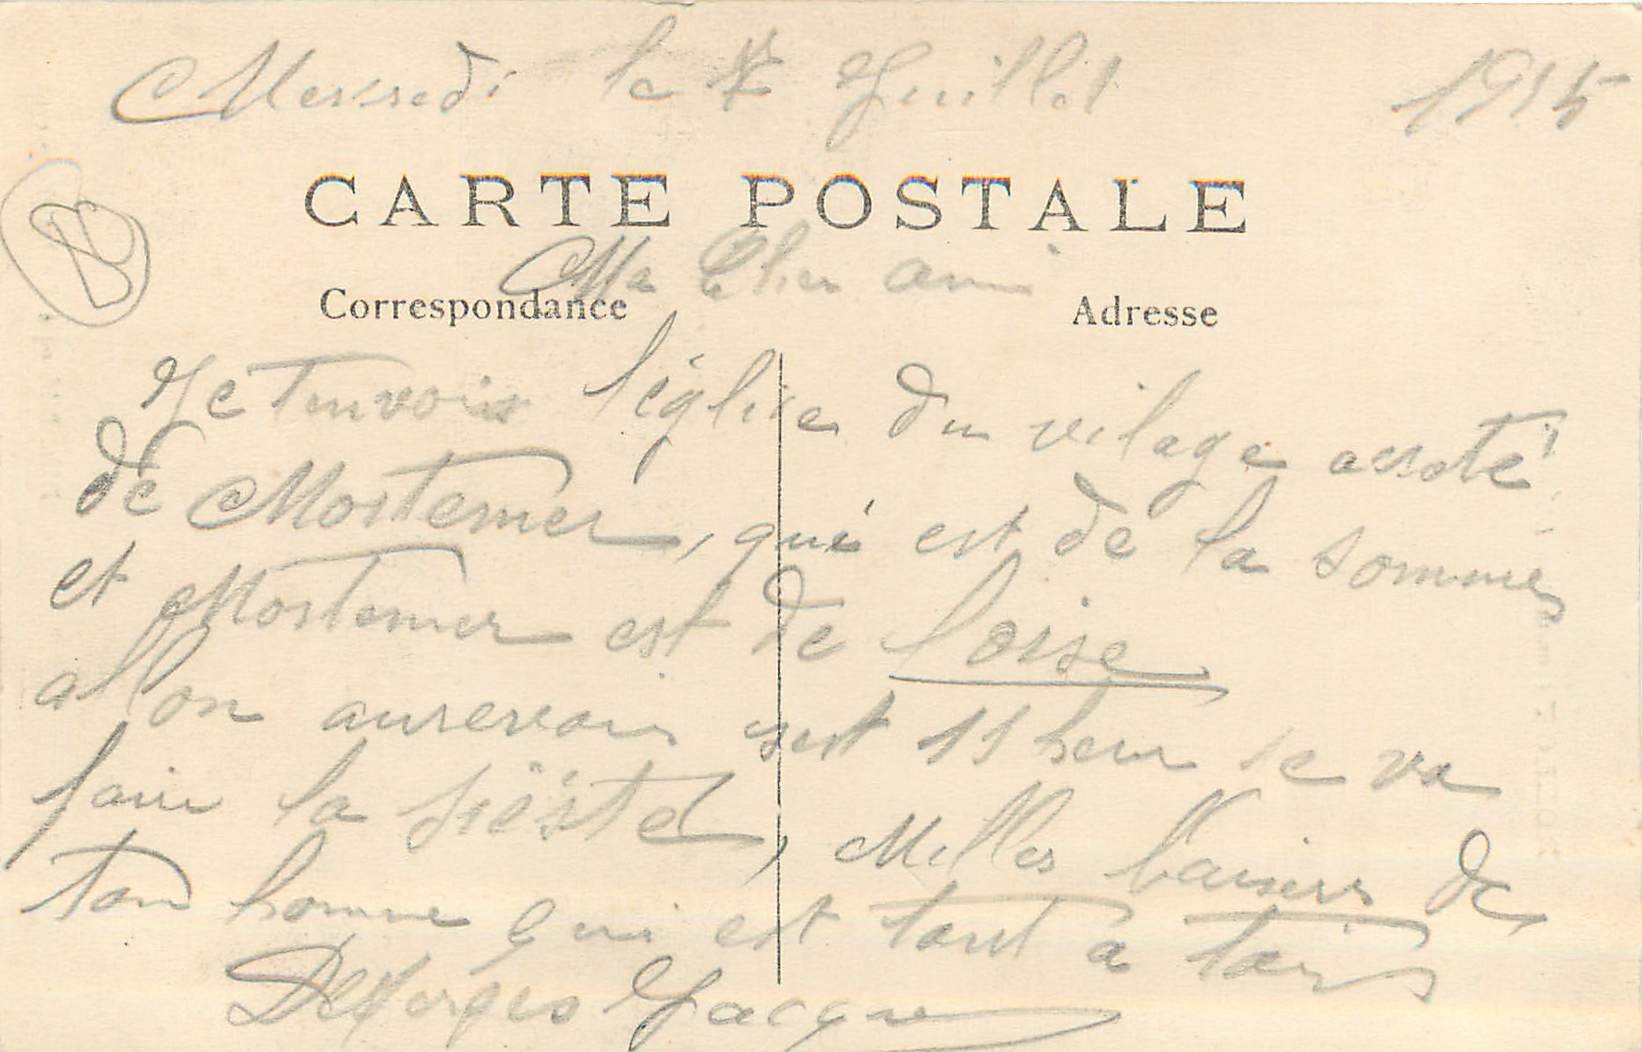 Mercredi le 7 Juillet 1915
CARTE POSTALE
Ma Cher ami
Correspondance
Adresse
Je tenvois l'église du vilage acoté
de Mortemer, qui est de la somme
et Mortemer est de loise
allon aurevoir set 11 heur je va
faire la siéste, Milles baisers de
ton homme qui est tout a toi
Desforges Jacque